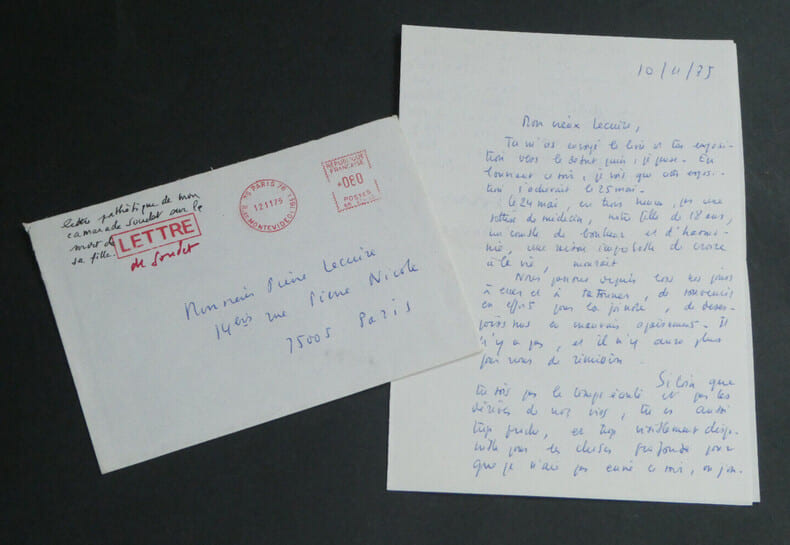 lettre pathétique de mon
camarade Soudet sur la
mort de
sa fille.
LETTRE
de Soudet
75 PARIS 78
12.11 75
R. MONTEVIDEO (16E)
REPUBLIQUE
FRANCAISE
*080
POSTES
Monsieur Pierre Lecuire
14 bis rue Pierre Nicole
75005 Paris
10/11/75
Mon vieux Lecuire,
Tu m'as envoyé le livre et ton exposi-
tion vers le début juin, je pense. En
ce soir, je vois que cette exposi-
tion s'achevait le 25 mai.
Le 24 mai, en trois heures, par une
de médecin, notre fille de 18 ans,
un comble de bonheur et d'harmo-
nie, une raison de croire
à la vie, mourait.
Nous depuis tous les jours
à et à , de souvenirs
en efforts pour la journée, de déses-
poirs en mauvais apaisements. Il
n'y a pas, et il n'y aura plus
pour nous de rémission.
Si loin que
tu sois par le temps écoulé et par les
dérives de nos vies, tu es aussi
trop proche, et trop visiblement dispo-
nible pour les choses profondes pour
que je n'aie pas envie ce soir, un jour